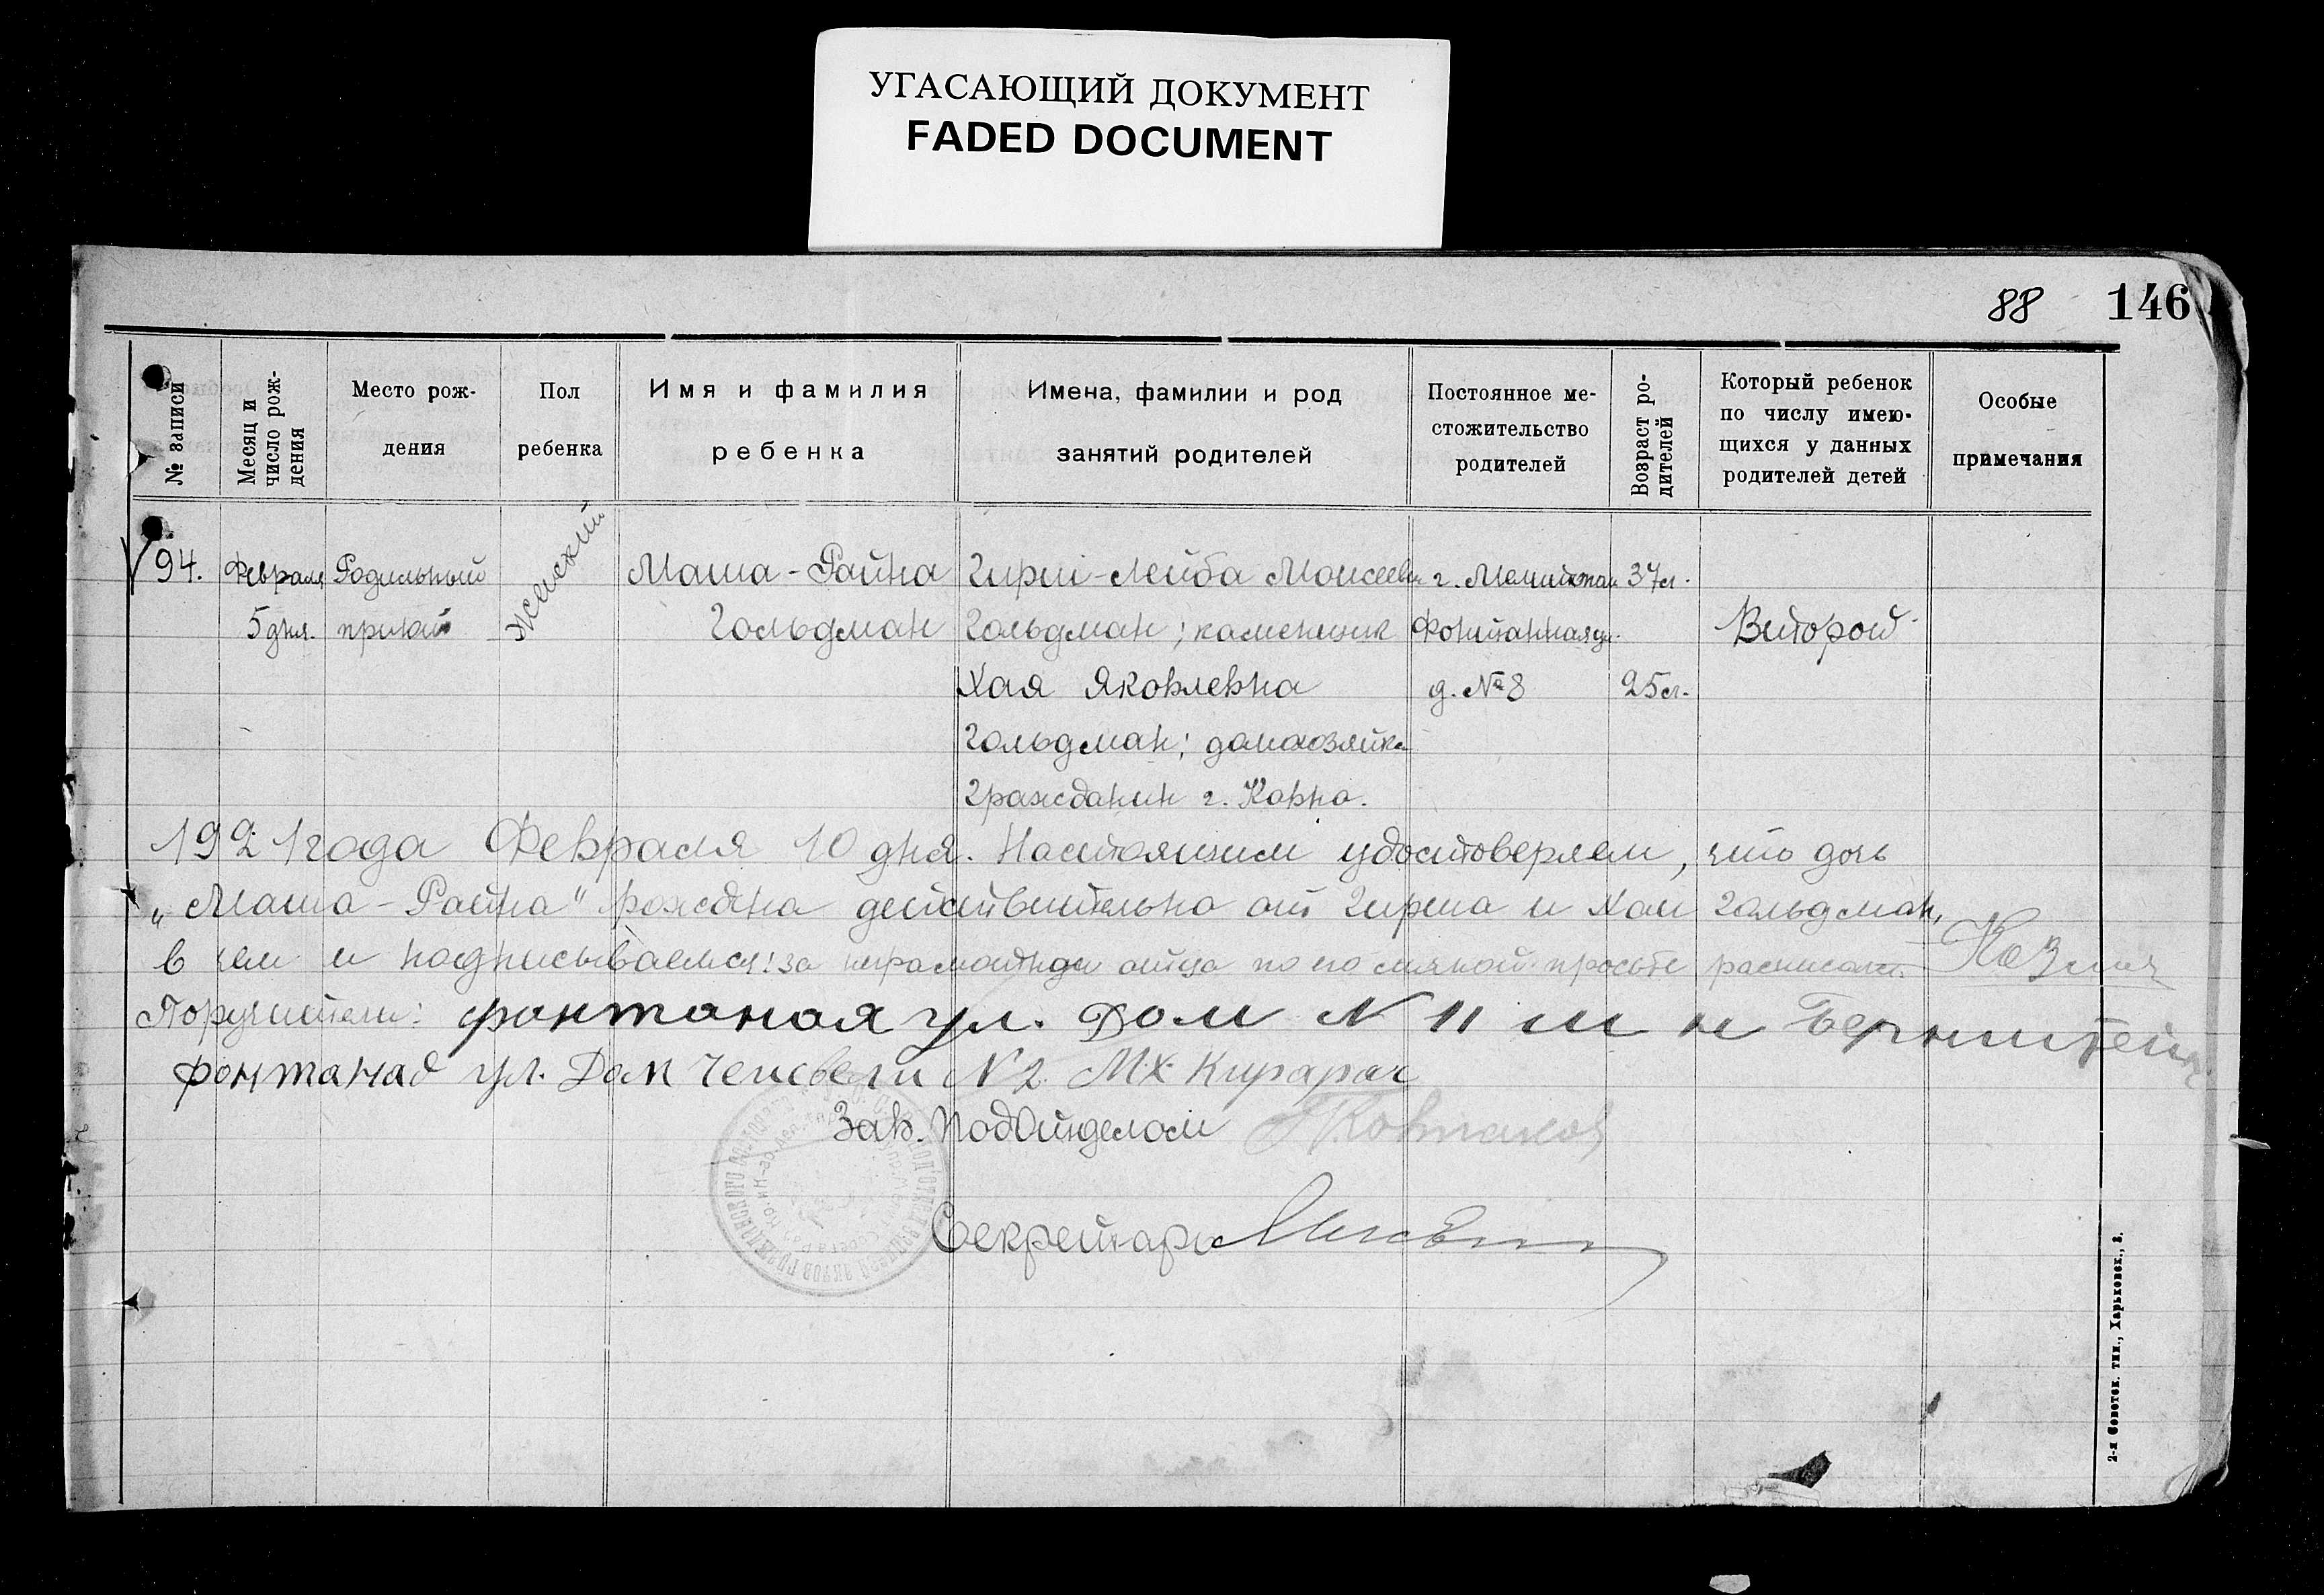 УГАСАЮЩИЙ ДОКУМЕНТ
FADED DOCUMENT
88 146
№ записи
Месяц и число рождения
Место рождения
Пол ребенка
Имя и фамилия ребенка
Имена, фамилии и род занятий родителей
Постоянное местожительство родителей
Возраст родителей
Который ребенок по числу имеющихся у данных родителей детей
Особые примечания
94. Февраля Родильный Женский Маша-Райна Гирш-Лейба Моисеев г. 37 л.
5 дня. приют Гольдман Гольдман; каменщик Фонтанная ул. Второй
Хая Яковлевна д. № 8 25 л.
Гольдман; домохозяйка
Гражданин г. Ковно.
1921 года Февраля 10 дня. Настоящим удостоверяем, что дочь
„Маша-Райна" рождена действительно от Гирша и Хаи Гольдман,
в чем и подписываемся: за отца по его просьбе
Поручители: фонтаная ул. Дом N 11 Бернштейн
ул. Дом N 2. М.Х.
Зав. Подотделом
Секретарь
2-я Советск. тип., Харьковск., 3.